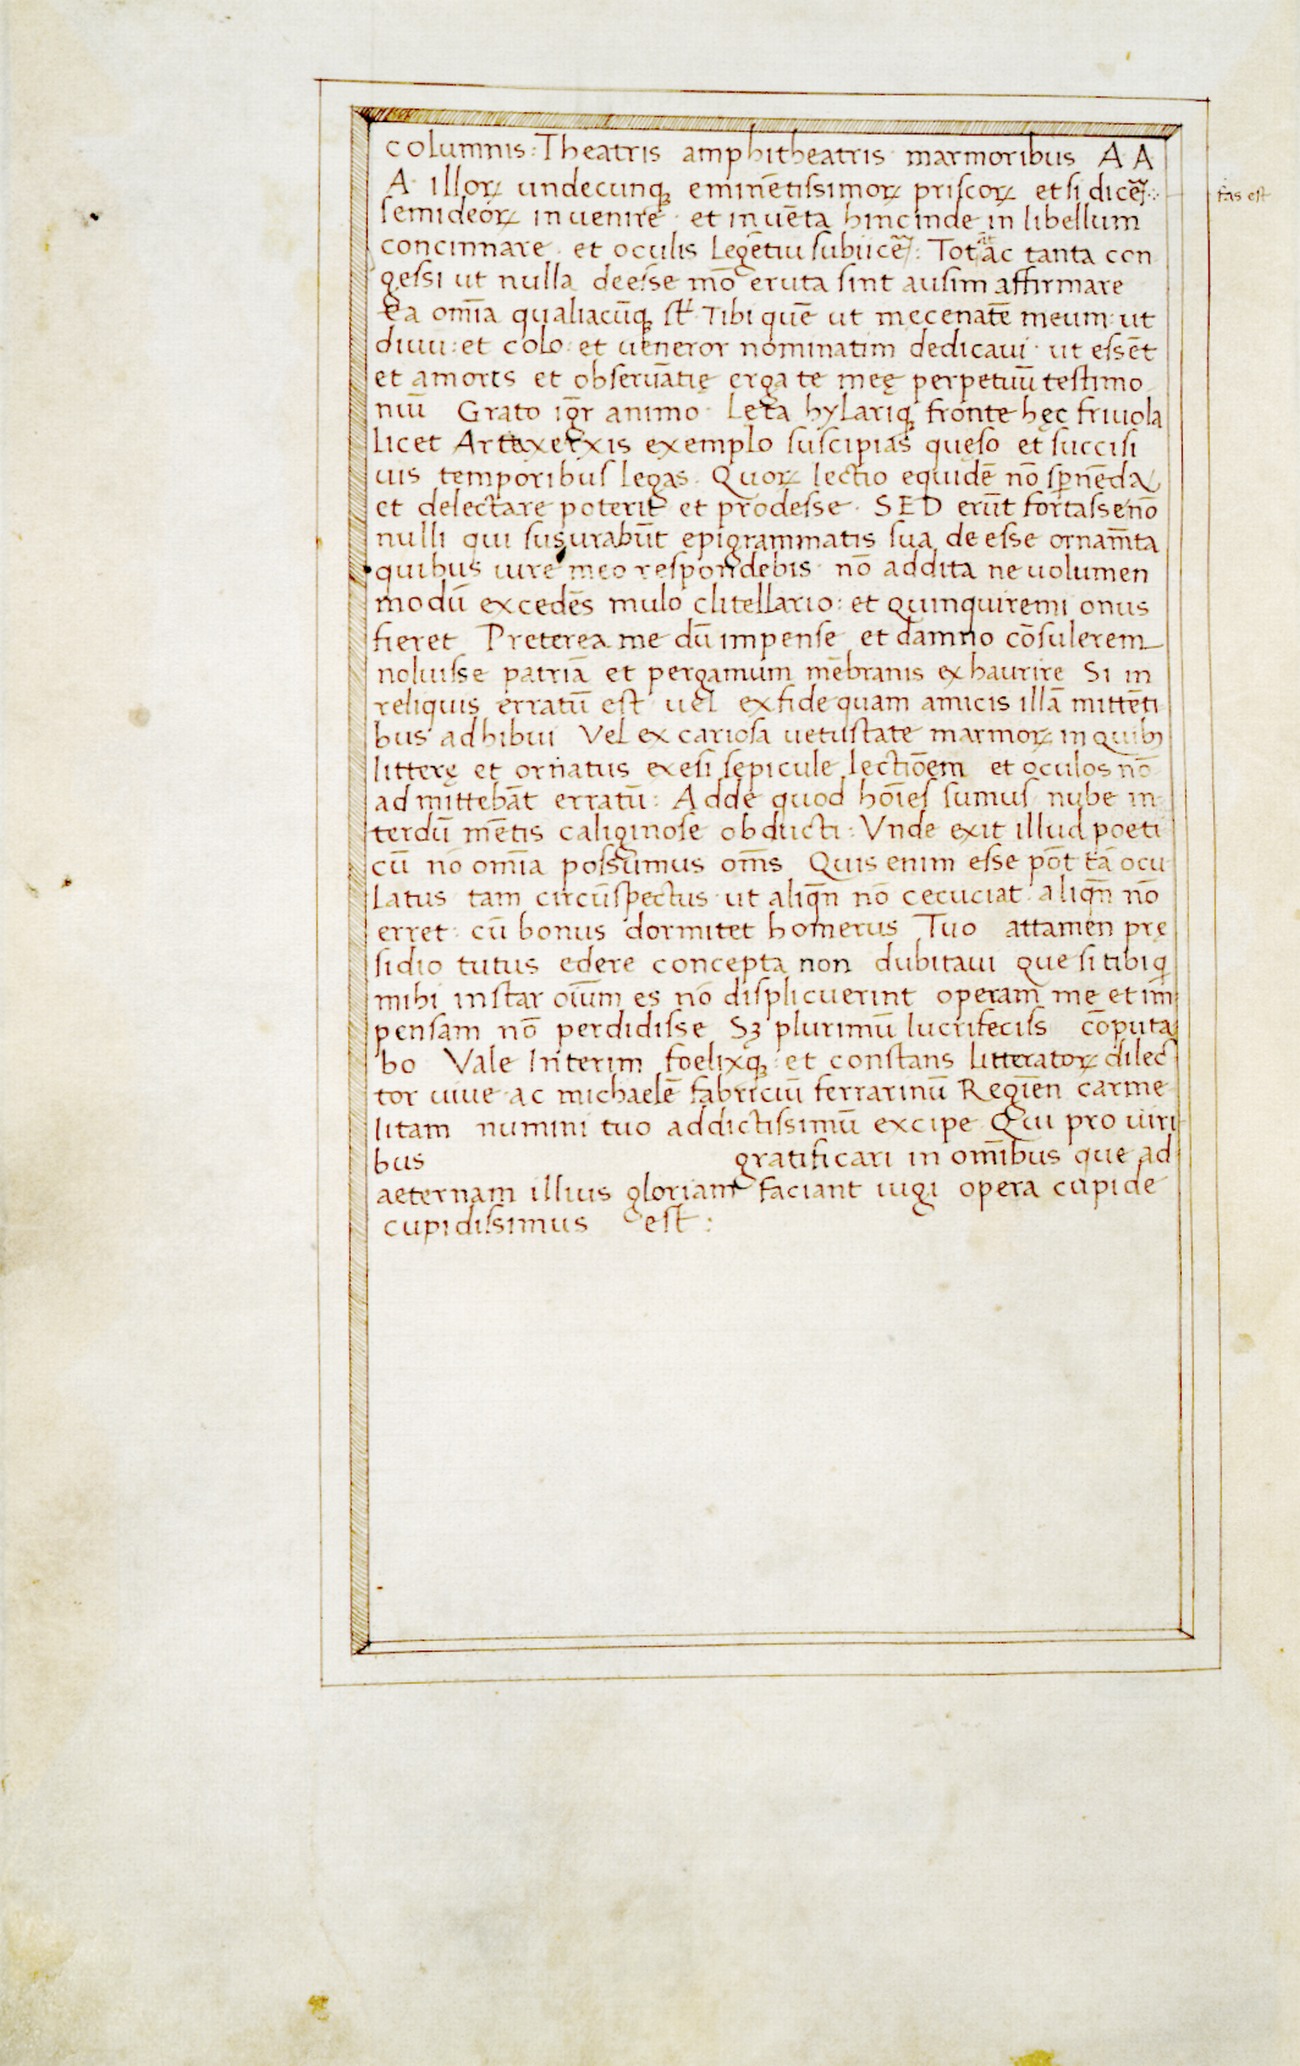 columnis: Theatris amphitheatris marmoribus A A
A illoꝝ undecunqꝫ eminētissimoꝝ priscoꝝ et si dicer̃ fas est
semideoꝝ inuenire et inuēta hinc inde in libellum
concinnare · et oculis Legētiū subiicer̃: Tot at ac tanta con
gessi ut nulla deesse mō eruta sint ausim affirmare
Ea om̄ia qualiacūqꝫ st̄ Tibi quē ut mecenatē meum: ut
diuū: et colo: et ueneror nominatim dedicaui · ut essēt
et amoris et obseruātię erga te meę perpetuū testimo
niū Grato igr̄ animo · Lęta hylariqꝫ fronte hęc friuola
licet Artaxerxis exemplo suscipias quęso et succisi
uis temporibus legas. Quoꝝ lectio equidē nō spnēda
et delectare poterit et prodesse · SED erūt fortasse nō
nulli qui susurabūt epigrammatis sua deesse ornam̄ta
quibus iure meo respondebis · nō addita ne uolumen
modū excedēs mulo clitellario: et quinquiremi onus
fieret Preterea me dū impense et damno cōsulerem
noluisse patriā et pergamum mēbranis exhaurire Si in
reliquis erratū est uel ex fide quam amicis illā mittēti
bus adhibui Vel ex cariosa uetustate marmoꝝ in quibꝫ
litterę et ornatus exesi sępicule lectiōem et oculos nō
admittebāt erratū: Adde quod hoīes sumus nube in
terdū mētis caliginose obducti: Vnde exit illud poeti
cū nō om̄ia possumus om̄s Quis enim esse pōt tā ocu
Latus tam circūspectus ut aliqn̄ nō cecuciat aliqn̄ nō
erret · cū bonus dormitet homerus Tuo attamen pre
sidio tutus edere concepta non dubitaui que si tibi q
mihi instar oīum es nō displicuerint operam me et im
pensam nō perdidisse Sꝫ plurimū lucrifeciss cōputa
bo Vale Interim foelixqꝫ et constans litteratoꝝ dilec
tor uiue ac michaelē fabriciū ferrarinū Regiēn carme
litam numini tuo addictissimū excipe Qui pro uiri
bus gratificari in om̄ibus que ad
aeternam illius gloriam faciant iugi opera cupide
cupidissimus est: